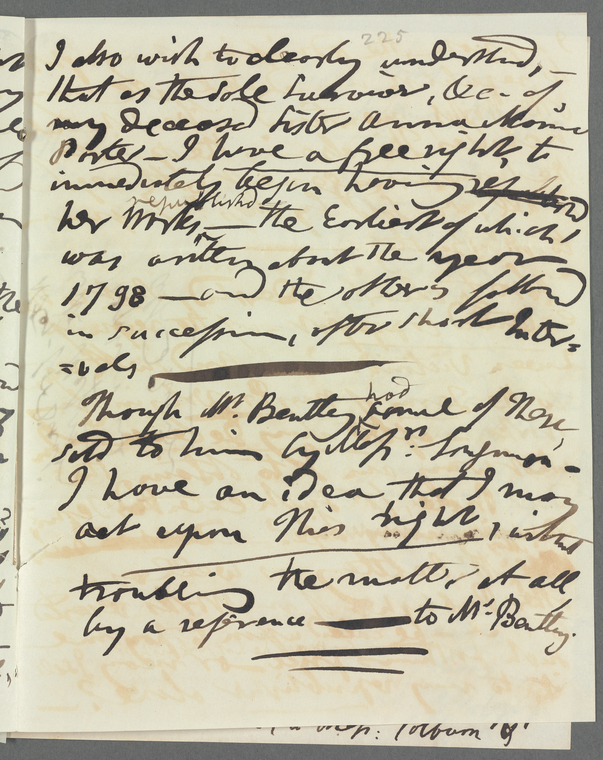 225
I also wish to clearly understand, —
that as the Sole Survivor, &c - of
my deceased Sister Anna Maria
Porter — I have a free right, to
immediately begin having republished
republished
her Works, — the Earliest of which,
was written about the year
1798 — and the others followed
in succession, after short Inter=
=vals
had
Though Mr. Bentley some of these
sold to him by Messrs. Longman -
I have an idea that I may
act upon this right, without
troubling the matter at all
by a reference — to Mr. Bentley.
Messrs: Colburn